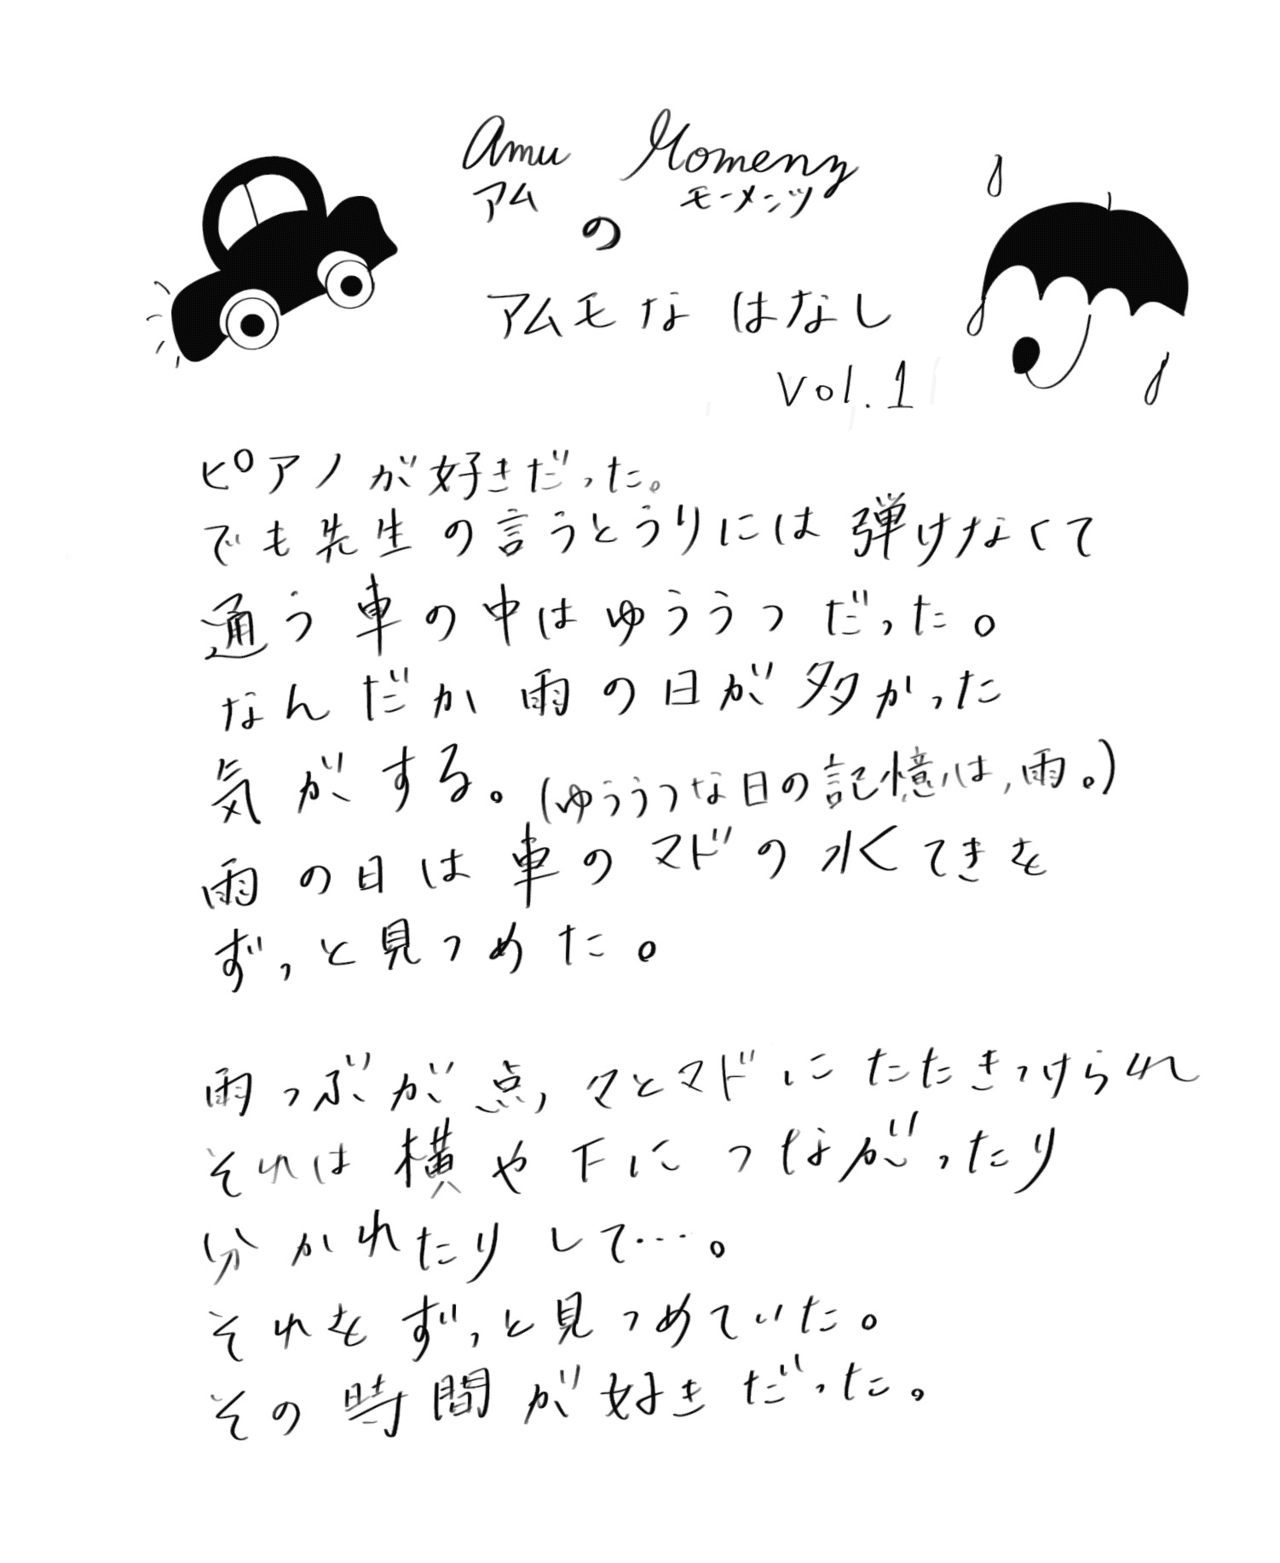 Amu Momenz
アム モーメンツ
の
アムモな はなし
Vol.1
ピアノが好きだった。
でも先生の言うとうりには弾けなくて
通う車の中はゆううつだった。
なんだか雨の日が多かった
気がする。(ゆううつな日の記憶は、雨。)
雨の日は車のマドの水てきを
ずっと見つめた。
雨つぶが点、々とマドにたたきつけられ
それは横や下につながったり
分かれたりして…。
それをずっと見つめていた。
その時間が好きだった。